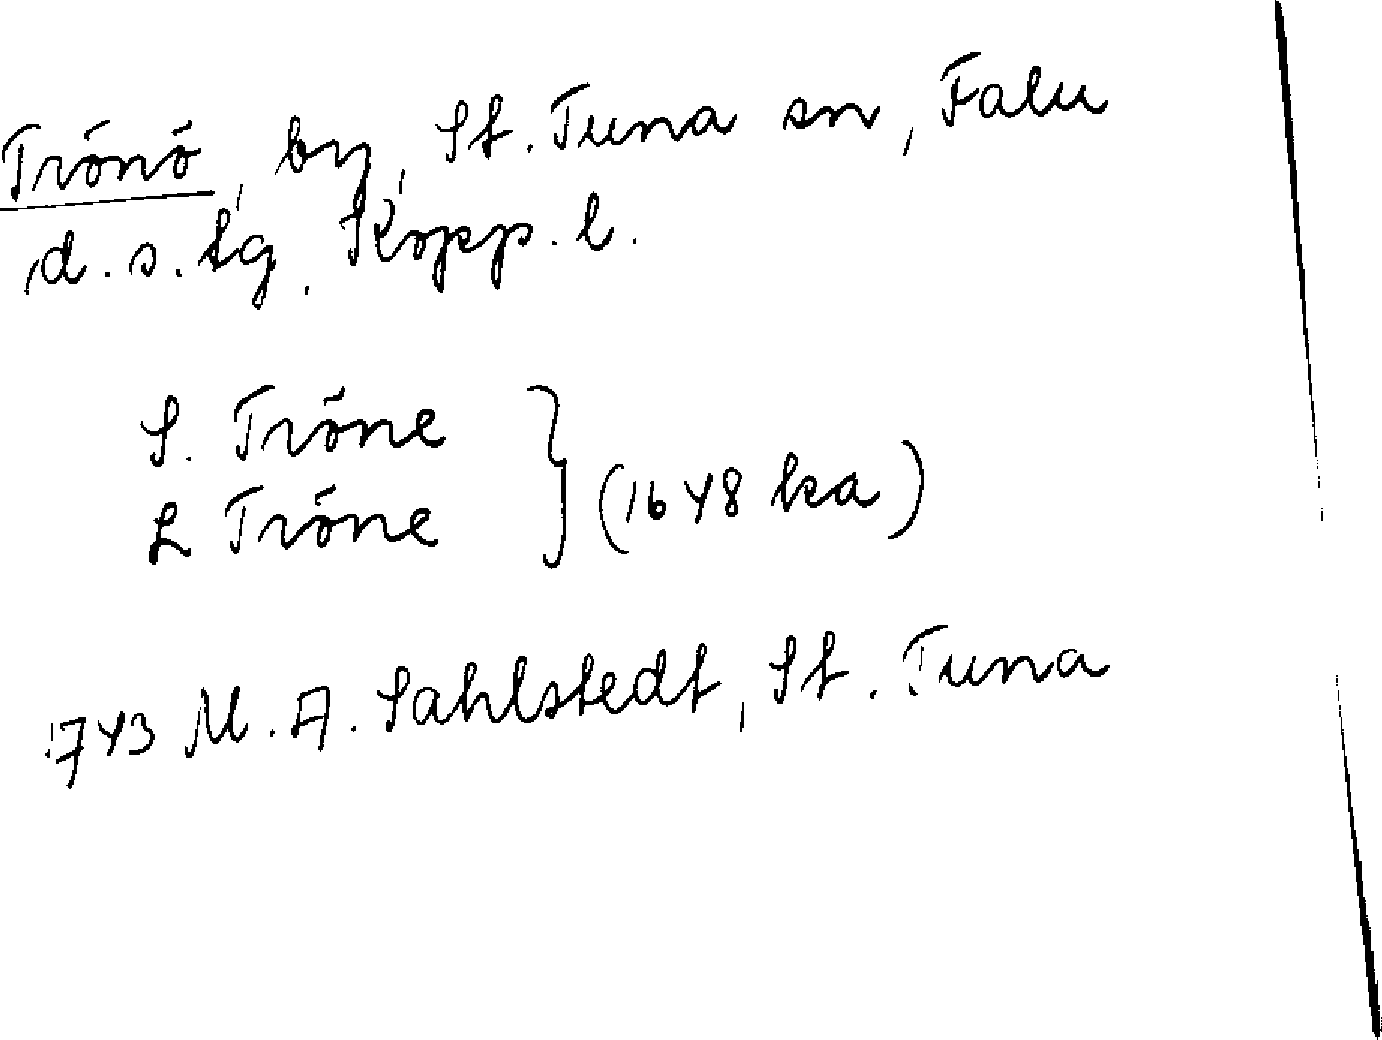 Trönö, by, St. Tuna sn, Falu
d. s. lg, Kopp. l.
S. Tröne
L Tröne } (1648 ka)
1743 M. A. Sahlstedt, St. Tuna